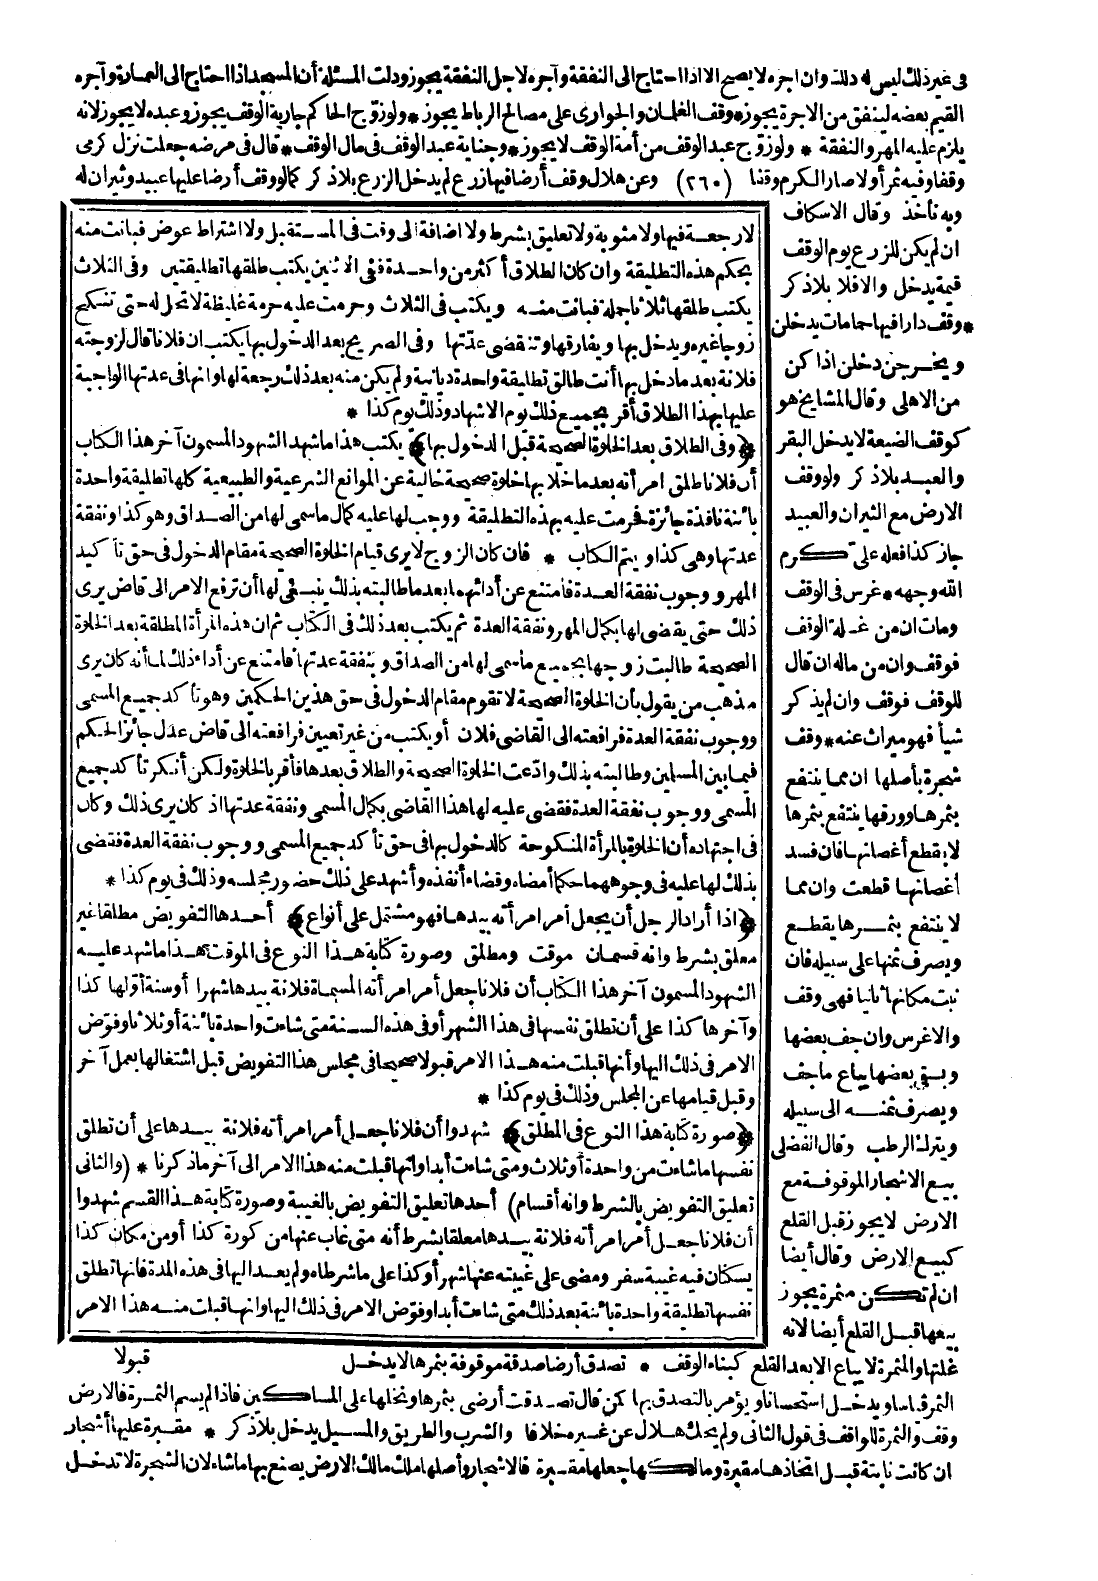 فى غير ذلك ليس له ذلك وان اجره لا يصح الا اذا احتاج الى النفقة وآجره لاجل النفقة يجوز ودلت المسئلة أن المسجد اذا احتاج الى العمارة وآجره
القيم بعضه لينفق من الاجرة يجوز * وقف الغلمان والجوارى على مصالح الرباط يجوز * ولو زوّج الحاكم جارية الوقف يجوز وعبده لا يجوز لانه
يلزم عليه المهر والنفقة * ولو زوّج عبد الوقف من أمة الوقف لا يجوز * وجناية عبد الوقف فى مال الوقف * قال فى مرضه جعلت نزل كرمى
وقفا وفيه ثمر أو لا صار الكرم وقفا (٢٦٠) وعن هلال وقف أرضا فيها زرع لم يدخل الزرع بلا ذكر كما لو وقف أرضا عليها عبيد وثيران له
وبه نأخذ وقال الاسكاف
ان لم يكن للزرع يوم الوقف
قيمة يدخل والا فلا بلا ذكر
* وقف دارا فيها حمامات يدخلن
ويخرجن دخلن اذا كن
من الاهلى وقال المشايخ هو
كوقف الضيعة لا يدخل البقر
والعبد بلا ذكر ولو وقف
الارض مع الثيران والعبيد
جاز كذا فعله على كرم
الله وجهه * غرس فى الوقف
ومات ان من غلة الوقف
فوقف وان من ماله ان قال
للوقف فوقف وان لم يذكر
شيأ فهو ميراث عنه * وقف
شجرة بأصلها ان مما ينتفع
بثمرها وورقها ينتفع بثمرها
لا بقطع أغصانها فان فسد
أغصانها قطعت وان مما
لا ينتفع بثمرها يقطع
ويصرف ثمنها على سبيله فان
نبت مكانها ثانيا فهى وقف
والا غرس وان جف بعضها
وبقى بعضها يباع ما جف
ويصرف ثمنه الى سبيله
ويترك الرطب وقال الفضلى
بيع الاشجار الموقوفة مع
الارض لا يجوز قبل القلع
كبيع الارض وقال أيضا
ان لم تكن مثمرة يجوز
بيعها قبل القلع أيضا لانه
لا رجعة فيها ولا مثنوية ولا تعليق بشرط ولا اضافة الى وقت فى المستقبل ولا اشتراط عوض فبانت منه
بحكم هذه التطليقة وان كان الطلاق أكثر من واحدة ففى الاثنين يكتب طلقها تطليقتين وفى الثلاث
يكتب طلقها ثلاثا جملة فبانت منه ويكتب فى الثلاث وحرمت عليه حرمة غليظة لا تحل له حتى تنكح
زوجا غيره ويدخل بها ويفارقها وتنقضى عدّتها وفى الصريح بعد الدخول بها يكتب ان فلانا قال لزوجته
فلانة بعد ما دخل بها أنت طالق تطليقة واحدة ديانية ولم يكن منه بعد ذلك رجعة لها وانها فى عدتها الواجبة
عليها بهذا الطلاق أقر بجميع ذلك يوم الاشهاد وذلك يوم كذا *
﴿وفى الطلاق بعد الخلوة الصحيحة قبل الدخول بها﴾ يكتب هذا ما شهد الشهود المسمون آخر هذا الكتاب
أن فلانا طلق امرأته بعد ما خلا بها خلوة صحيحة خالية عن الموانع الشرعية والطبيعية كلها تطليقة واحدة
بائنة نافذة جائزة فحرمت عليه بهذه التطليقة ووجب لها عليه كمال ما سمى لها من الصداق وهو كذا ونفقة
عدتها وهى كذا ويتم الكتاب * فان كان الزوج لا يرى قيام الخلوة الصحيحة مقام الدخول فى حق تأكيد
المهر ووجوب نفقة العدة فامتنع عن أدائهما بعد ما طالبته بذلك ينبغى لها أن ترفع الامر الى قاض يرى
ذلك حتى يقضى لها بكمال المهر ونفقة العدة ثم يكتب بعد ذلك فى الكتاب ثم ان هذه المرأة المطلقة بعد الخلوة
الصحيحة طالبت زوجها بجميع ما سمى لها من الصداق وبنفقة عدتها فامتنع عن أداء ذلك لما أنه كان يرى
مذهب من يقول بأن الخلوة الصحيحة لا تقوم مقام الدخول فى حق هذين الحكمين وهو تأكد جميع المسمى
ووجوب نفقة العدة فرافعته الى القاضى فلان أو يكتب من غير تعيين فرافعته الى قاض عدل جائز الحكم
فيما بين المسلمين وطالبته بذلك وادّعت الخلوة الصحيحة والطلاق بعدها فأقر بالخلوة ولكن أنكر تأكد جميع
المسمى ووجوب نفقة العدة فقضى عليه لها هذا القاضى بكمال المسمى ونفقة عدتها اذ كان يرى ذلك وكان
فى اجتهاده أن الخلوة بالمرأة المنكوحة كالدخول بها فى حق تأكد جميع المسمى ووجوب نفقة العدة فقضى
بذلك لها عليه فى وجوههما حكما أمضاه وقضاء أنفذه وأشهد على ذلك حضور مجلسه وذلك فى يوم كذا *
﴿اذا أراد الرجل أن يجعل أمر امرأته بيدها فهو مشتمل على أنواع﴾ أحدها التفويض مطلقا غير
معلق بشرط وانه قسمان موقت ومطلق وصورة كتابة هذا النوع فى الموقت هذا ما شهد عليه
الشهود المسمون آخر هذا الكتاب أن فلانا جعل أمر امرأته المسماة فلانة بيدها شهرا أو سنة أولها كذا
وآخرها كذا على أن تطلق نفسها فى هذا الشهر أو فى هذه السنة متى شاءت واحدة بائنة أو ثلاثا وفوّض
الامر فى ذلك اليها وأنها قبلت منه هذا الامر قبولا صحيحا فى مجلس هذا التفويض قبل اشتغالها بعمل آخر
وقبل قيامها عن المجلس وذلك فى يوم كذا *
﴿صورة كتابة هذا النوع فى المطلق﴾ شهدوا أن فلانا جعل أمر امرأته فلانة بيدها على أن تطلق
نفسها ما شاءت من واحدة أو ثلاث ومتى شاءت أبدا وانها قبلت منه هذا الامر الى آخر ما ذكرنا * (والثانى
تعليق التفويض بالشرط وانه أقسام) أحدها تعليق التفويض بالغيبة وصورة كتابة هذا القسم شهدوا
أن فلانا جعل أمر امرأته فلانة بيدها معلقا بشرط أنه متى غاب عنها من كورة كذا أو من مكان كذا
يسكنان فيه غيبة سفر ومضى على غيبته عنها شهر أو كذا على ما شرطاه ولم يعد اليها فى هذه المدة فانها تطلق
نفسها تطليقة واحدة بائنة بعد ذلك متى شاءت أبدا وفوّض الامر فى ذلك اليها وانها قبلت منه هذا الامر
قبولا
غلتها والمثمرة لا يباع الا بعد القلع كبناء الوقف * تصدق أرضا صدقة موقوفة بثمرها لا يدخل
الثمر قياسا ويدخل استحسانا ويؤمر بالتصدق بها كمن قال تصدقت أرضى بثمرها ونخلها على المساكين فاذا لم يسم الثمرة فالارض
وقف والثمرة للواقف فى قول الثانى ولم يحك هلال عن غيره خلافا والشرب والطريق والمسيل يدخل بلا ذكر * مقبرة عليها أشجار
ان كانت نابتة قبل اتخاذها مقبرة ومالكها جعلها مقبرة فالاشجار وأصلها ملك مالك الارض يصنع بها ما شاء لان الشجرة لا تدخل